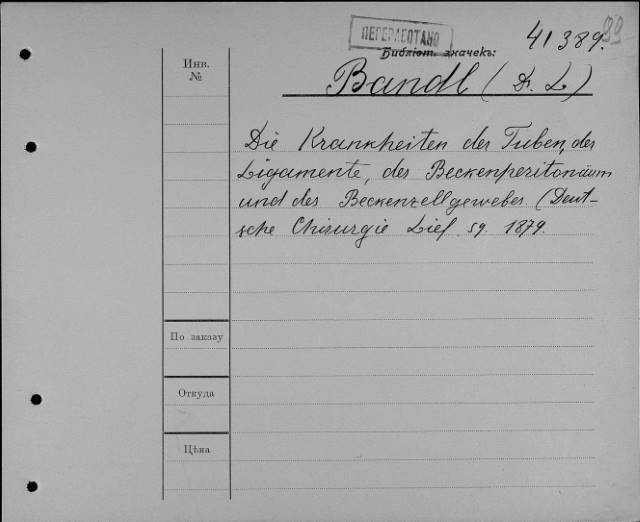 ПЕРЕРАБОТАНО
41389.
Библіот. значекъ:
Инв.
№
Bandl (Dr. L)
Die Krankheiten der Tuben, der
Ligamente, des Beckenperitonäum
und des Beckenzellgewebes. (Deut-
sche Chirurgie Lief. 59. 1879.
По заказу
Откуда
Цѣна